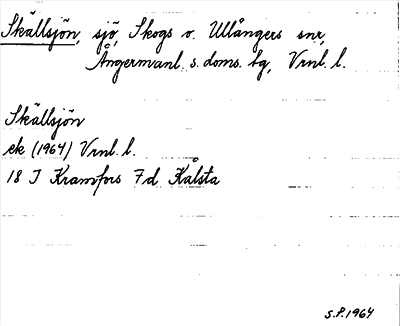 Skällsjön, sjö, Skogs o. Ullångers snr,
Ångermanl. s. doms. tg, Vrnl. l.
Skällsjön
ek (1964) Vrnl. l.
18 I Kramfors 7d Kålsta
S.P. 1964